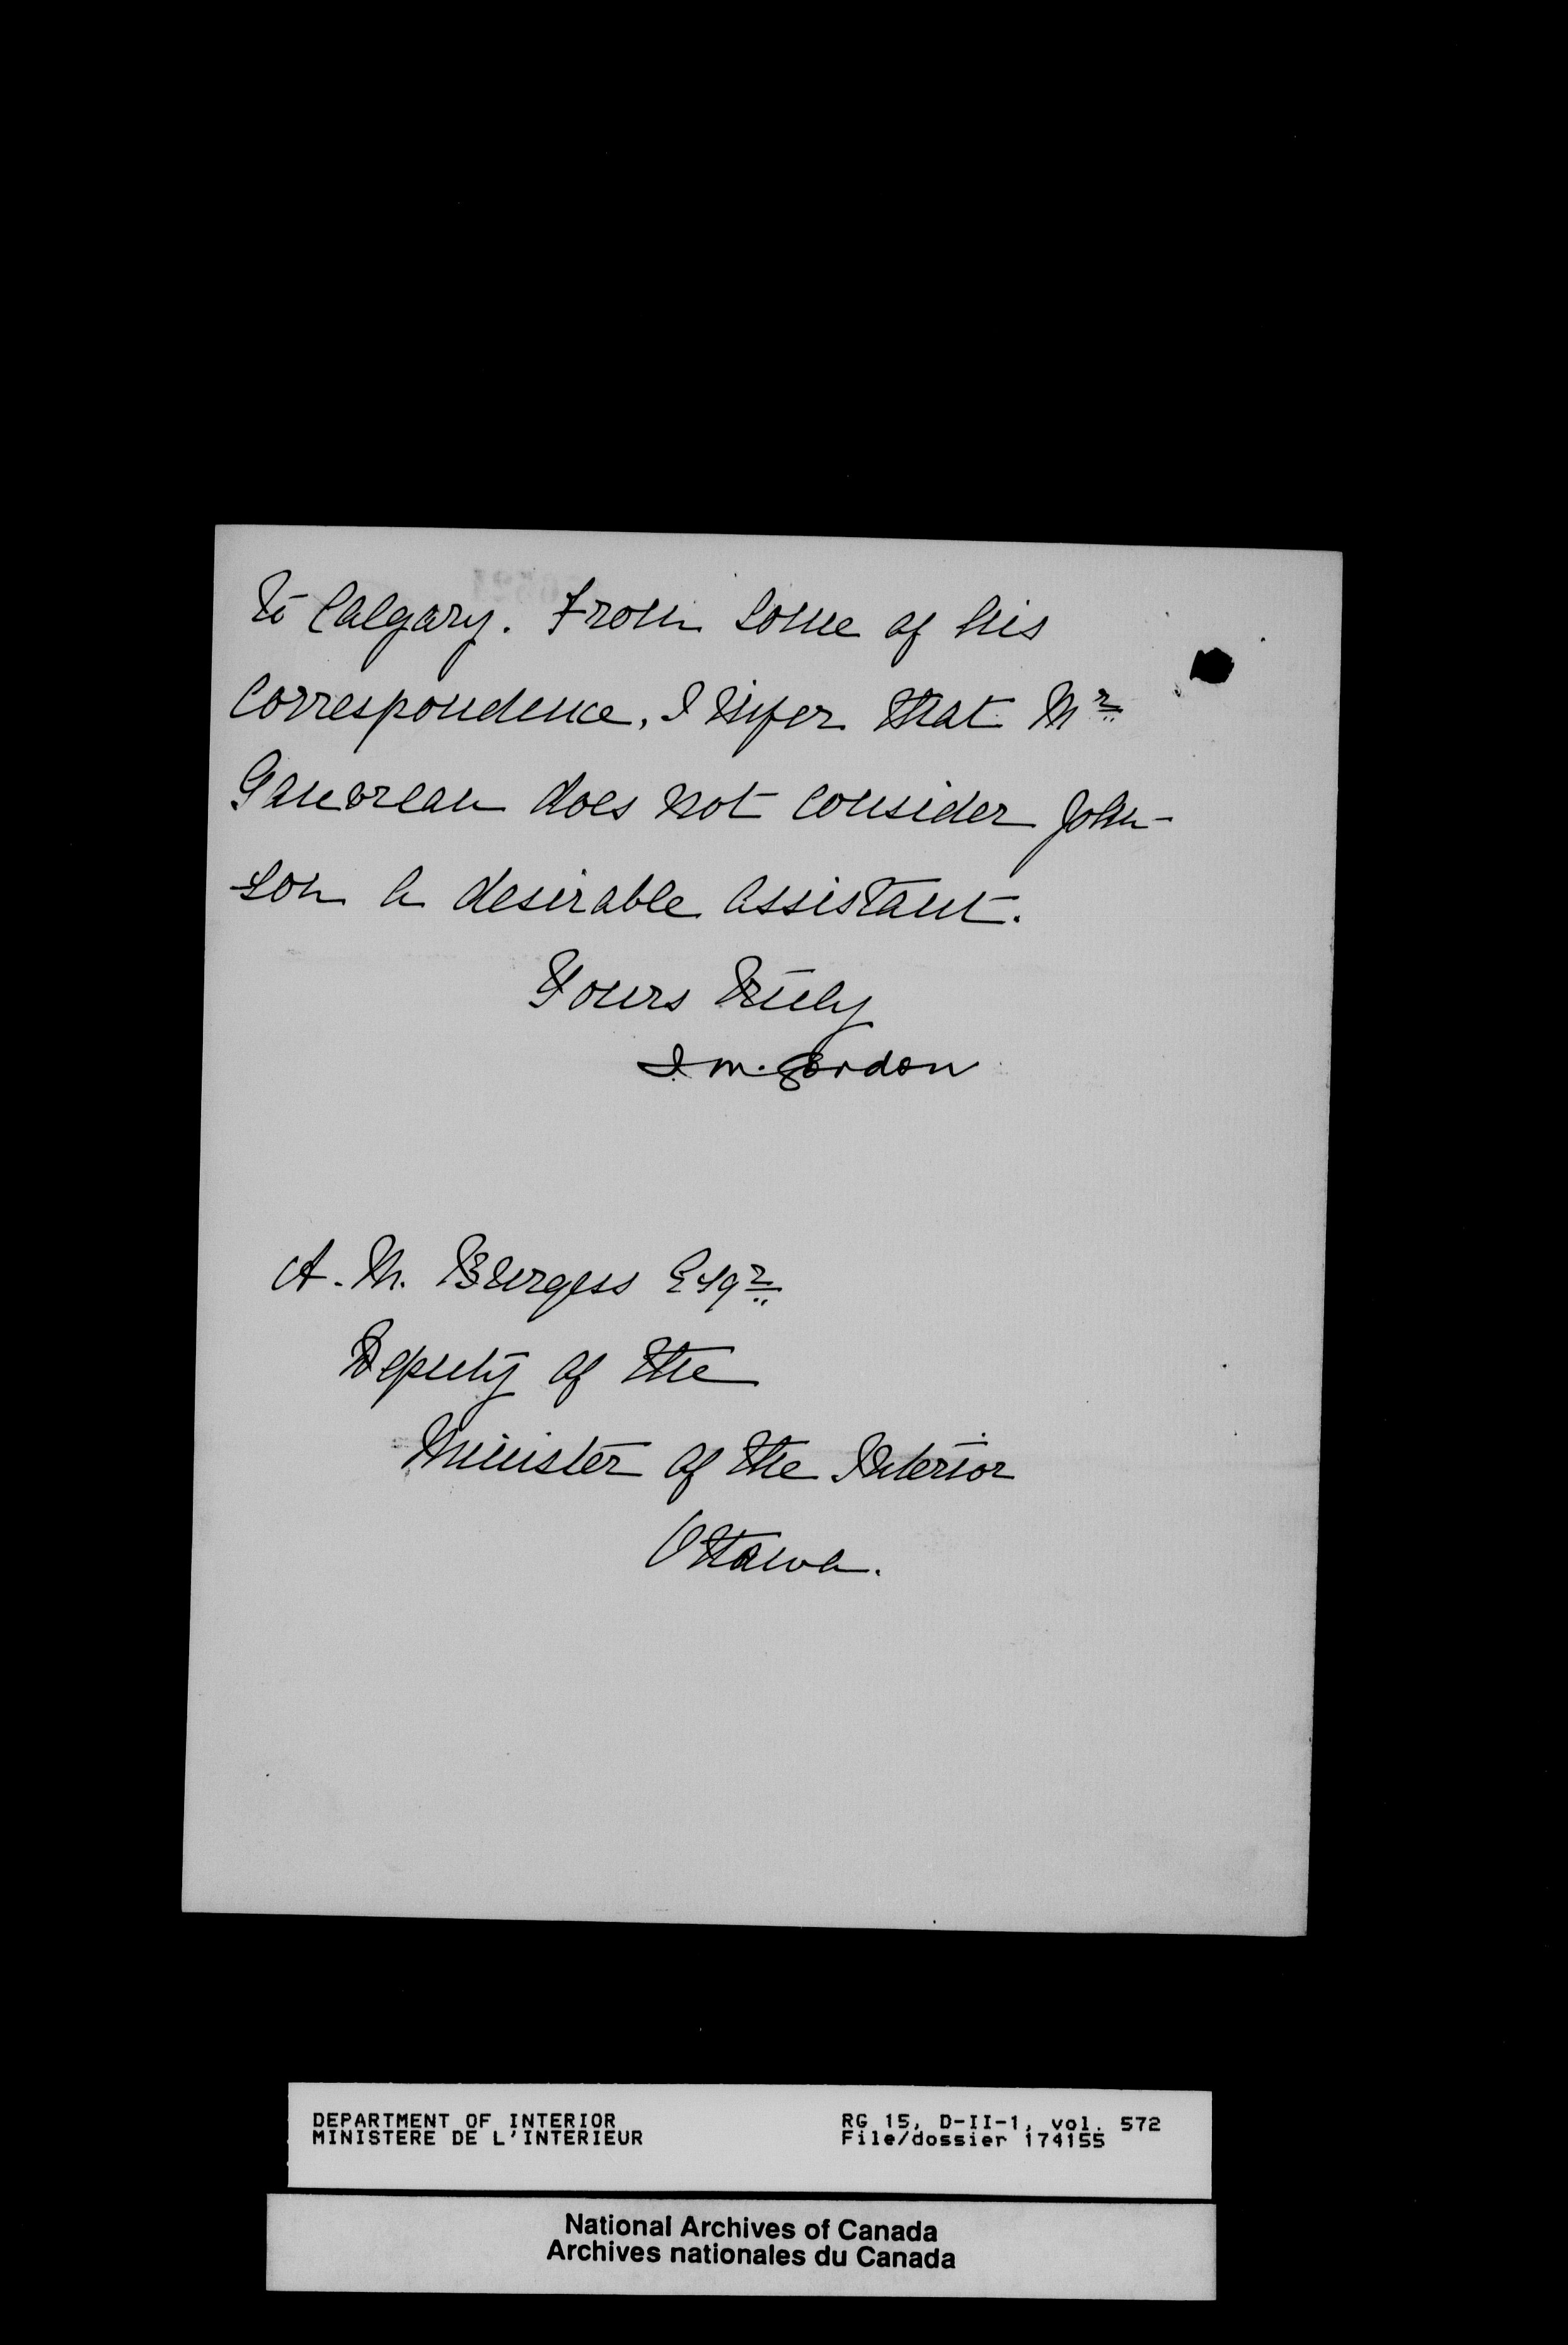 to Calgary. From some of his
correspondence, I infer that Mr
Gauvreau does not consider John-
son a desirable assistant.
Yours truly
J. M. Gordon
A. M. Burgess Esqr
Deputy of the
Minister of the Interior
Ottawa.
DEPARTMENT OF INTERIOR
MINISTERE DE L'INTERIEUR
RG 15, D-II-1, vol. 572
File/dossier 174155
National Archives of Canada
Archives nationales du Canada